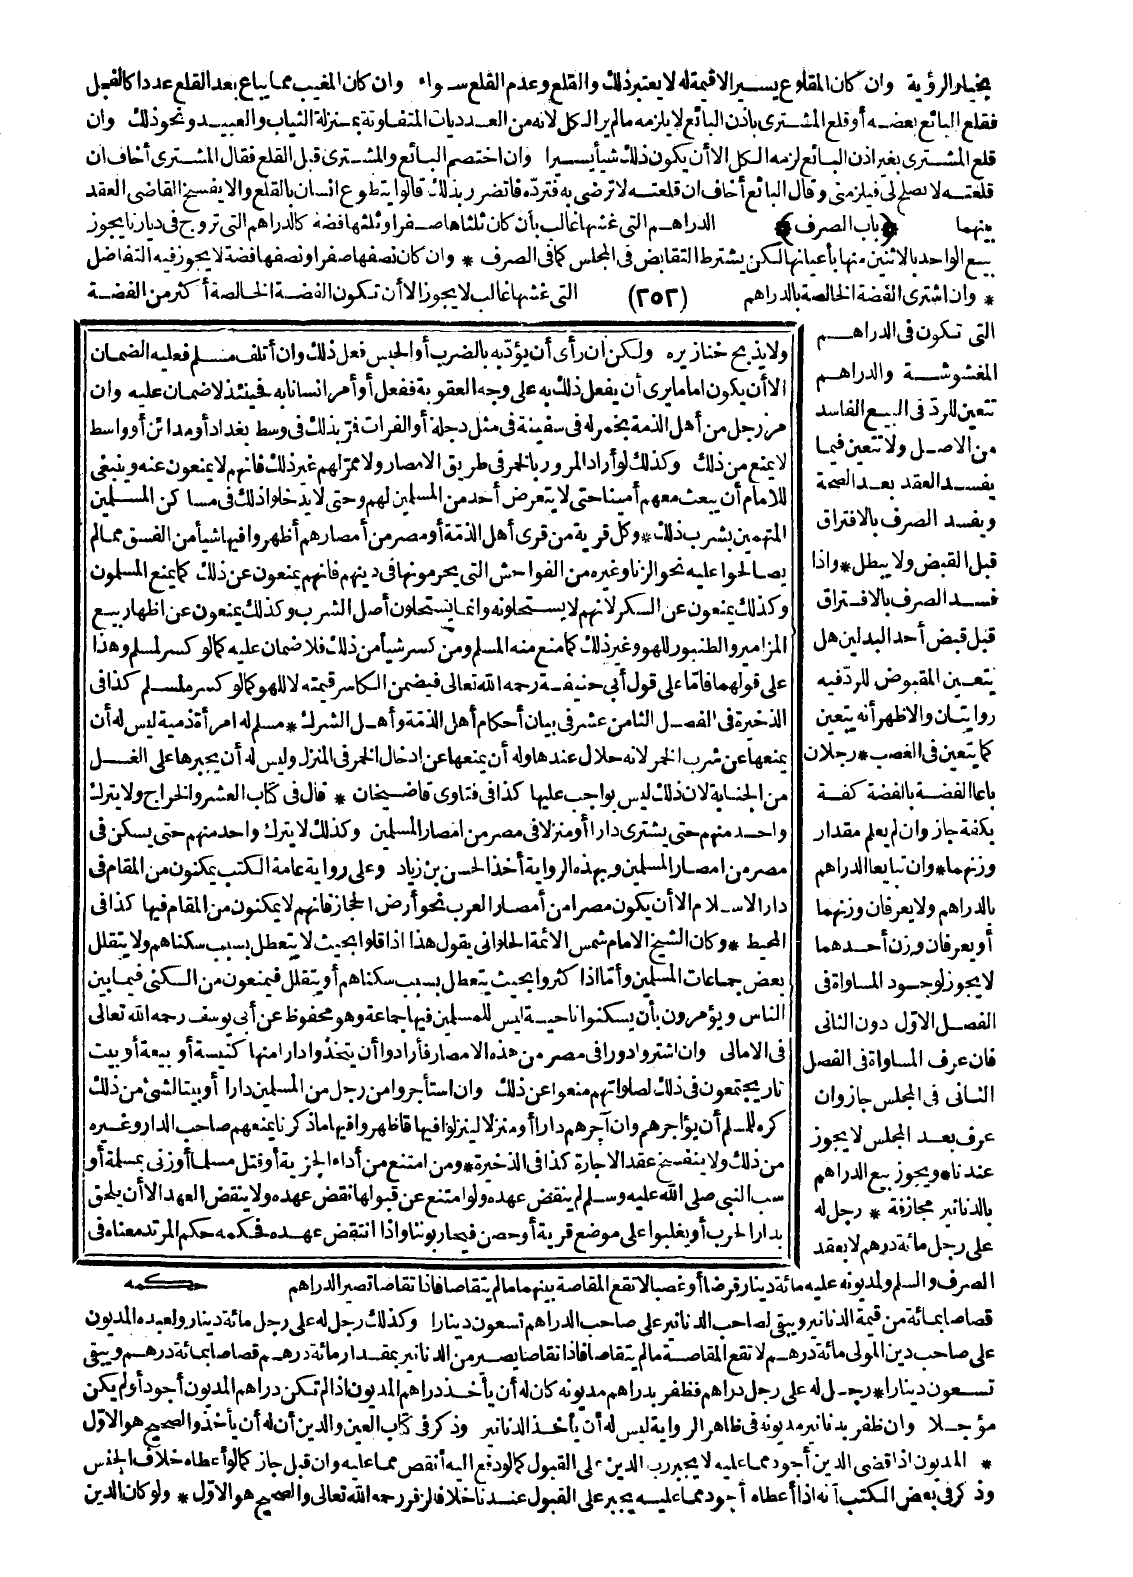 بخيار الرؤية وان كان المقلوع يسيرا لاقيمة له لا يعتبر ذلك والقلع وعدم القلع سواء وان كان المغيب مما يباع بعد القلع عددا كالفجل
فقلع البائع بعضه أو قلع المشترى باذن البائع لا يلزمه مالم ير الكل لانه من العدديات المتفاوتة بمنزلة الثياب والعبيد ونحو ذلك وان
قلع المشترى بغير اذن البائع لزمه الكل الا أن يكون ذلك شيأ يسيرا وان اختصم البائع والمشترى قبل القلع فقال المشترى أخاف ان
قلعته لا يصلح لى فيلزمنى وقال البائع أخاف ان قلعته لا ترضى به فترده فاتضرر بذلك قالوا يتطوع انسان بالقلع والا يفسخ القاضى العقد
بينهما ﴿باب الصرف﴾ الدراهم التى غشها غالب بأن كان ثلثاها صفرا وثلثها فضة كالدراهم التى تروج فى ديارنا يجوز
بيع الواحد بالاثنين منها بأعيانها لكن يشترط التقابض فى المجلس كما فى الصرف * وان كان نصفها صفرا ونصفها فضة لا يجوز فيه التفاضل
* وان اشترى الفضة الخالصة بالدراهم (٢٥٢) التى غشها غالب لا يجوز الا أن تكون الفضة الخالصة أكثر من الفضة
التى تكون فى الدراهم
المغشوشة والدراهم
تتعين للرد فى البيع الفاسد
من الاصل ولا تتعين فيما
يفسد العقد بعد الصحة
ويفسد الصرف بالافتراق
قبل القبض ولا يبطل * واذا
فسد الصرف بالافتراق
قبل قبض أحد البدلين هل
يتعين المقبوض للرد فيه
روايتان والاظهر أنه يتعين
كما يتعين فى الغصب * رجلان
باعا الفضة بالفضة كفة
بكفة جاز وان لم يعلم مقدار
وزنهما * وان تبايعا الدراهم
بالدراهم ولا يعرفان وزنهما
أو يعرفان وزن أحدهما
لا يجوز لوجود المساواة فى
الفصل الاول دون الثانى
فان عرف المساواة فى الفصل
الثانى فى المجلس جاز وان
عرف بعد المجلس لا يجوز
عندنا * ويجوز بيع الدراهم
بالدنانير مجازفة * رجل له
على رجل مائة درهم لا بعقد
ولا يذبح خنازيره ولكن ان رأى أن يؤدبه بالضرب أو الحبس فعل ذلك وان أتلف مسلم فعليه الضمان
الا أن يكون اماما يرى أن يفعل ذلك به على وجه العقوبة ففعل أو أمر انسانا به فحينئذ لا ضمان عليه وان
مر رجل من أهل الذمة بخمر له فى سفينة فى مثل دجلة أو الفرات فمر بذلك فى وسط بغداد أو مدائن أو واسط
لا يمنع من ذلك وكذلك لو أراد المرور بالخمر فى طريق الامصار ولا ممر لهم غير ذلك فانهم لا يمنعون عنه وينبغى
للامام أن يبعث معهم أمينا حتى لا يتعرض أحد من المسلمين لهم وحتى لا يدخلوا ذلك فى مساكن المسلمين
المتهمين بشرب ذلك * وكل قرية من قرى أهل الذمة أو مصر من أمصارهم أظهروا فيها شيأ من الفسق مما لم
يصالحوا عليه نحو الزنا وغيره من الفواحش التى يحرمونها فى دينهم فانهم يمنعون عن ذلك كما يمنع المسلمون
وكذلك يمنعون عن السكر لانهم لا يستحلونه وانما يستحلون أصل الشرب وكذلك يمنعون عن اظهار بيع
المزامير والطنبور للهو وغير ذلك كما منع منه المسلم ومن كسر شيأ من ذلك فلا ضمان عليه كما لو كسر لمسلم وهذا
على قولهما فاما على قول أبى حنيفة رحمه الله تعالى فيضمن الكاسر قيمته لا للهو كما لو كسر ملسلم كذا فى
الذخيرة فى الفصل الثامن عشر فى بيان أحكام أهل الذمة وأهل الشرك * مسلم له امرأة ذمية ليس له أن
يمنعها عن شرب الخمر لانه حلال عندها وله أن يمنعها عن ادخال الخمر فى المنزل وليس له أن يجبرها على الغسل
من الجنابة لان ذلك ليس بواجب عليها كذا فى فتاوى قاضيخان * قال فى كتاب العشر والخراج ولا يترك
واحد منهم حتى يشترى دارا أو منزلا فى مصر من امصار المسلمين وكذلك لا يترك واحد منهم حتى يسكن فى
مصر من امصار المسلمين وبهذه الرواية أخذ الحسن بن زياد وعلى رواية عامة الكتب يمكنون من المقام فى
دار الاسلام الا أن يكون مصرا من أمصار العرب نحو أرض الحجاز فانهم لا يمكنون من المقام فيها كذا فى
المحيط * وكان الشيخ الامام شمس الائمة الحلوانى يقول هذا اذا قلوا بحيث لا يتعطل بسبب سكناهم ولا يتقلل
بعض جماعات المسلمين وأما اذا كثروا بحيث يتعطل بسبب سكناهم أو يتقلل فيمنعون من السكنى فيما بين
الناس ويؤمرون بأن يسكنوا ناحية ليس للمسلمين فيها جماعة وهو محفوظ عن أبى يوسف رحمه الله تعالى
فى الامالى وان اشتروا دورا فى مصر من هذه الامصار فأرادوا أن يتخذوا دارا منها كنيسة أو بيعة أو بيت
نار يجتمعون فى ذلك لصلواتهم منعوا عن ذلك وان استأجروا من رجل من المسلمين دارا أو بيتا لشئ من ذلك
كره للمسلم أن يؤاجرهم وان آجرهم دارا أو منزلا لينزلوا فيها فأظهروا فيها ما ذكرنا يمنعهم صاحب الدار وغيره
من ذلك ولا ينفسخ عقد الاجارة كذا فى الذخيرة * ومن امتنع من أداء الجزية أو قتل مسلما أو زنى بمسلمة أو
سب النبى صلى الله عليه وسلم لم ينقض عهده ولو امتنع عن قبولها نقض عهده ولا ينقض العهد الا أن يلحق
بدار الحرب أو يغلبوا على موضع قرية أو حصن فيحاربوننا واذا انتقض عهده فحكمه حكم المرتد معناه فى
حكمه
الصرف والسلم ولمديونه عليه مائة دينار قرضا أو غصبا لا تقع المقاصة بينهما مالم يتقاصا فاذا تقاصا تصير الدراهم
قصاصا بمائة من قيمة الدنانير ويبقى لصاحب الدنانير على صاحب الدراهم تسعون دينارا وكذلك رجل له على رجل مائة دينار ولعبده المديون
على صاحب دين المولى مائة درهم لا تقع المقاصة مالم يتقاصا فاذا تقاصا يصير من الدنانير بمقدار مائة درهم قصاصا بمائة درهم ويبقى
تسعون دينارا * رجل له على رجل دراهم فظفر بدراهم مديونه كان له أن يأخذ دراهم المديون اذا لم تكن دراهم المديون أجود أو لم يكن
مؤجلا وان ظفر بدنانير مديونه فى ظاهر الرواية ليس له أن يأخذ الدنانير وذكر فى كتاب العين والدين أن له أن يأخذ والصحيح هو الاول
* المديون اذا قضى الدين أجود مما عليه لا يجبر رب الدين على القبول كما لو دفع اليه أنقص مما عليه وان قبل جاز كما لو أعطاه خلاف الجنس
وذكر فى بعض الكتب أنه اذا أعطاه أجود مما عليه يجبر على القبول عندنا خلافا لزفر رحمه الله تعالى والصحيح هو الاول * ولو كان الدين